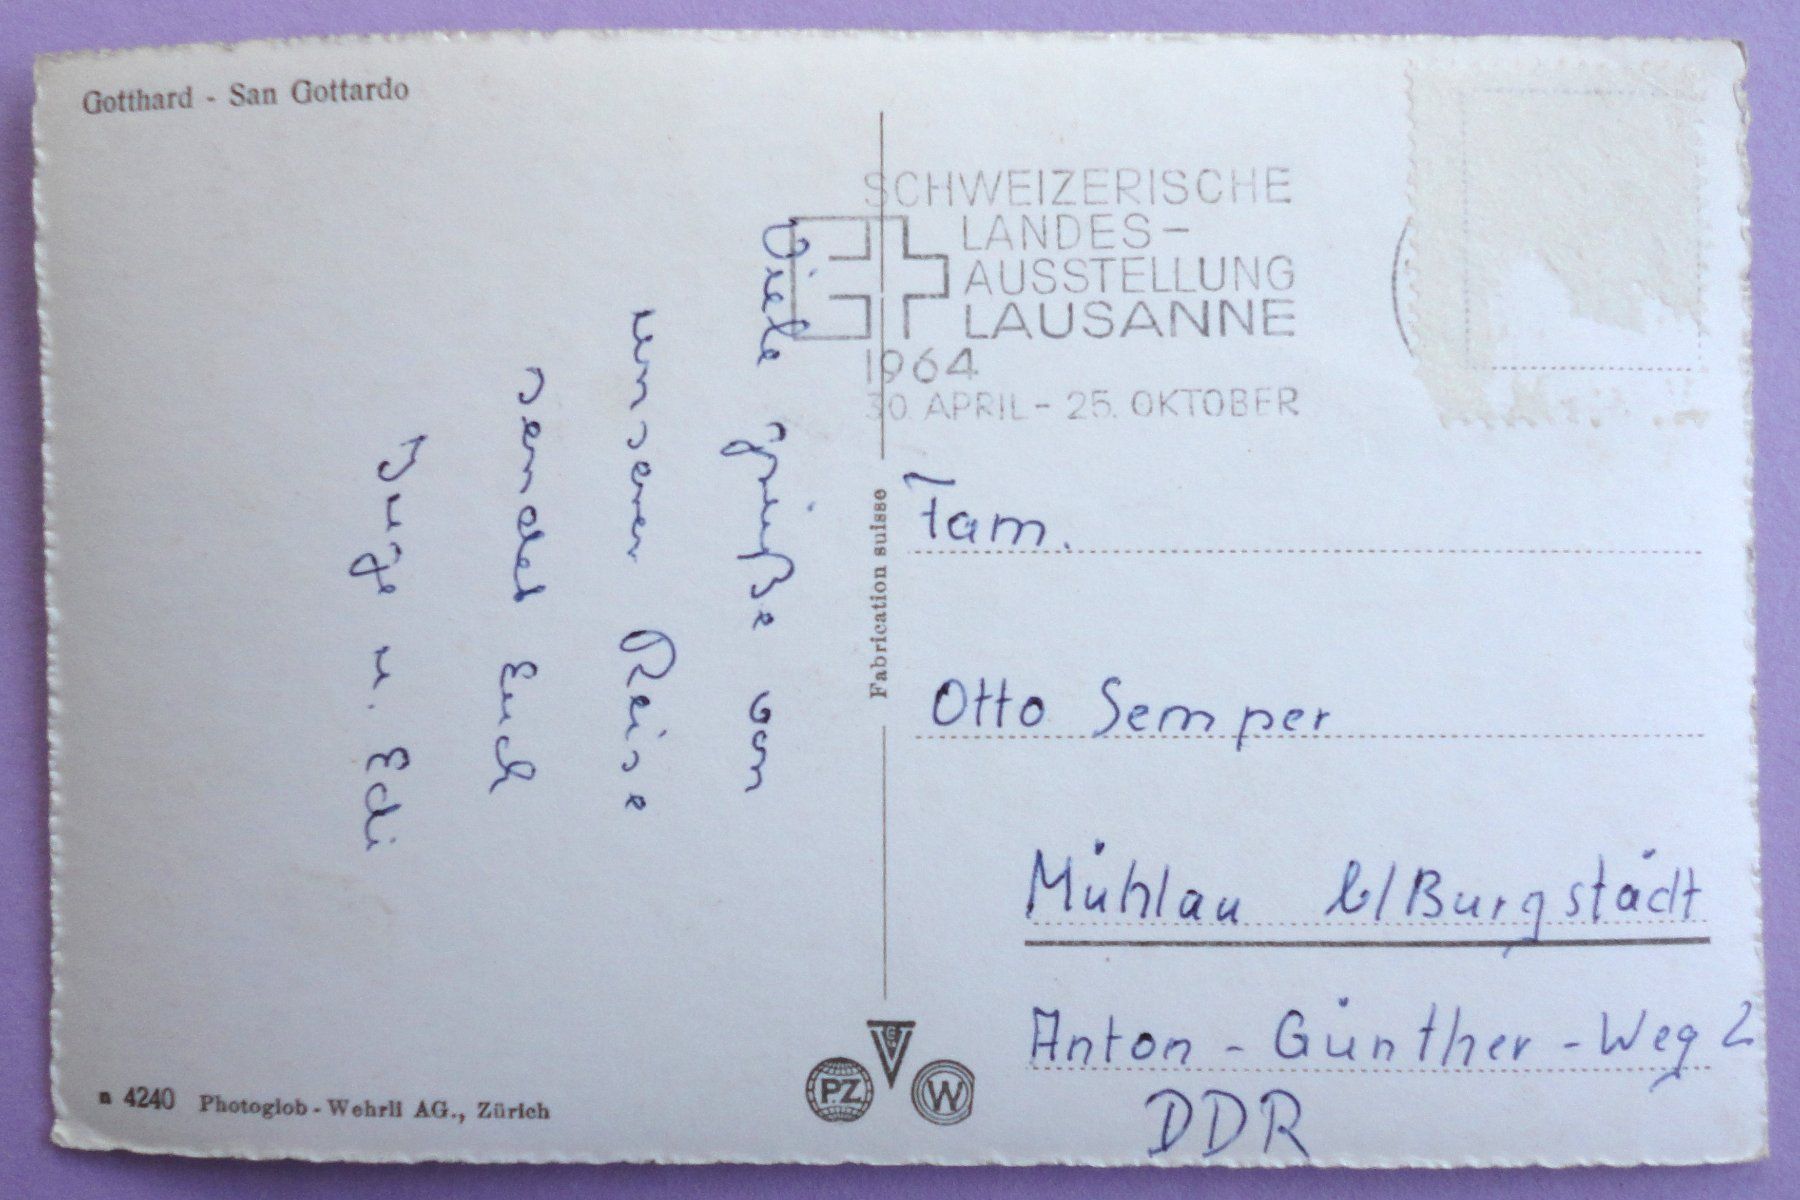 Gotthard - San Gottardo
SCHWEIZERISCHE
LANDES-
AUSSTELLUNG
LAUSANNE
1964
30. APRIL - 25. OKTOBER
Viele Grüße von
unserer Reise
sendet Euch
Inge u. Edi
Fabrication suisse
Fam.
Otto Semper
Mühlau b/Burgstädt
Anton-Günther-Weg 2
DDR
n 4240 Photoglob-Wehrli AG., Zürich
P.Z
W